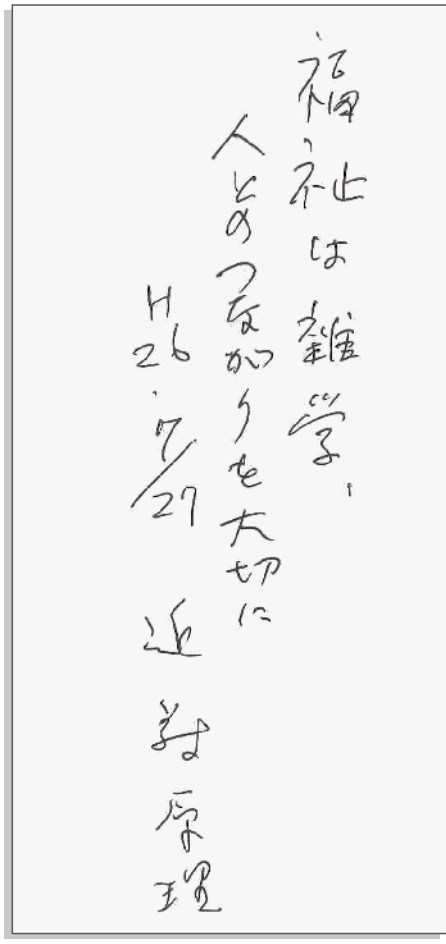 福祉は雑学、
人とのつながりを大切に
H26.7/27 近藤原理